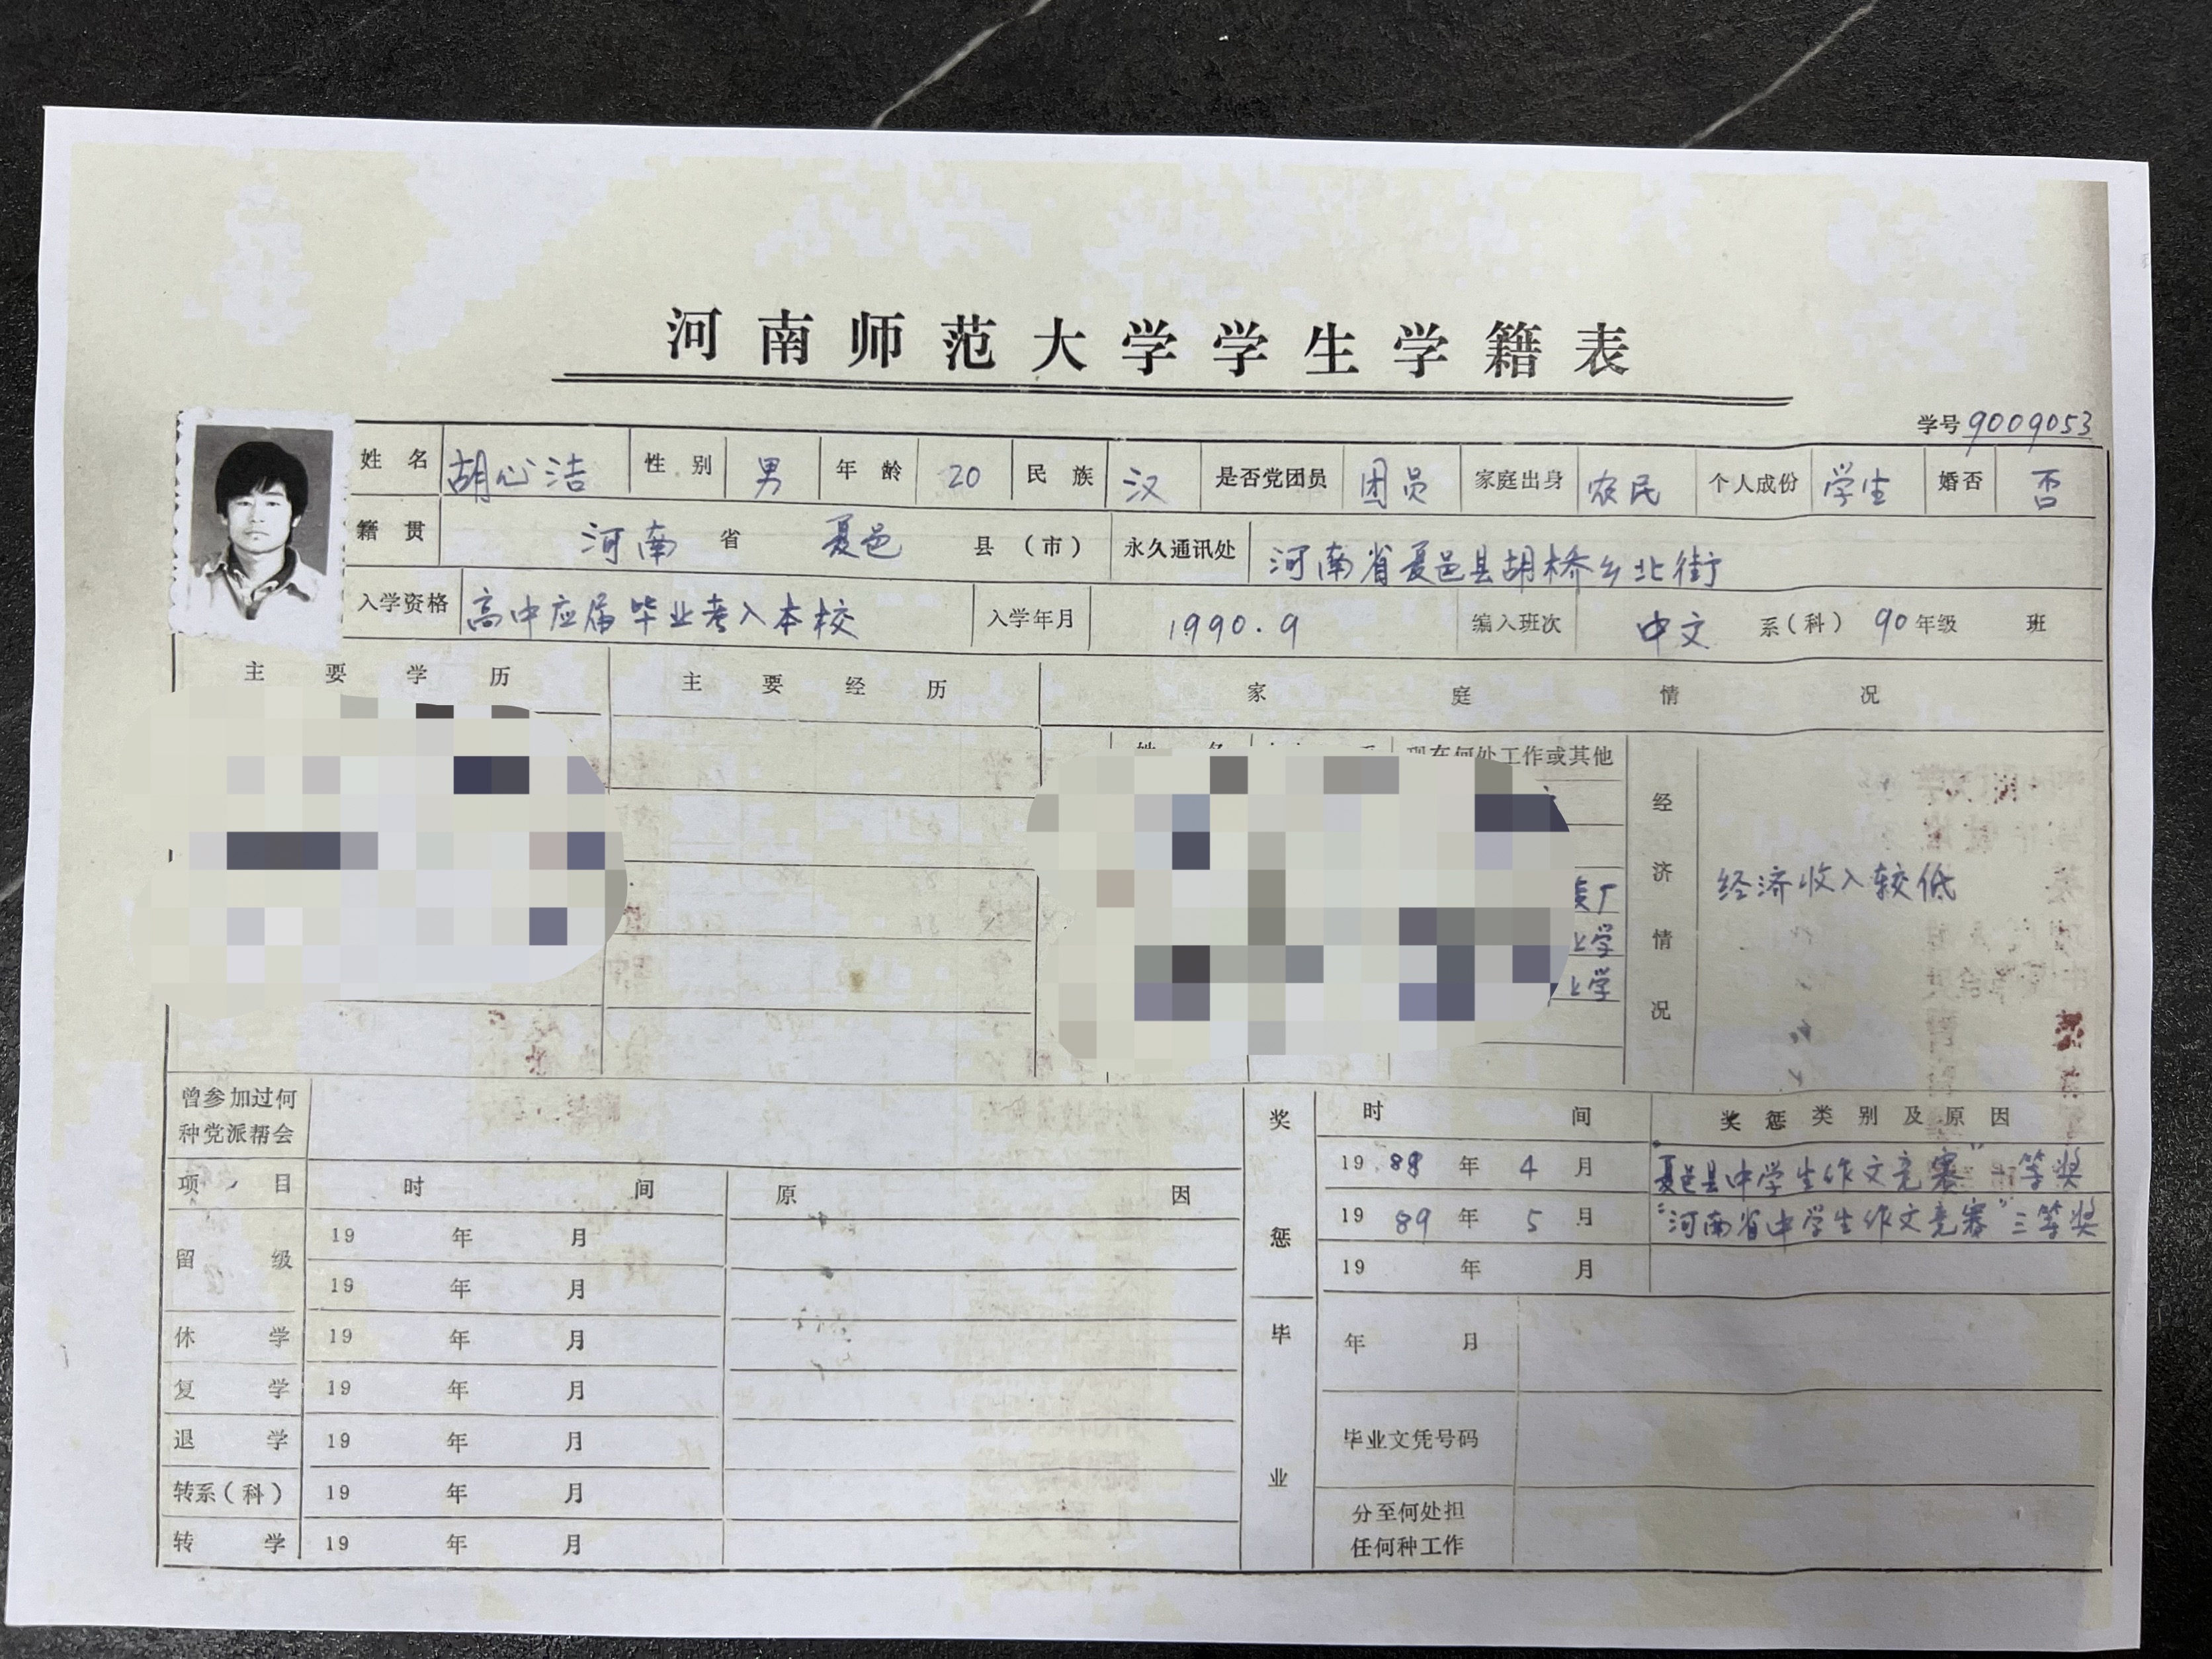 河南师范大学学生学籍表
学号 9009053
姓名 胡心洁 性别 男 年龄 20 民族 汉 是否党团员 团员 家庭出身 农民 个人成份 学生 婚否 否
籍贯 河南 省 夏邑 县(市) 永久通讯处 河南省夏邑县胡桥乡北街
入学资格 高中应届毕业考入本校 入学年月 1990.9 编入班次 中文 系(科) 90年级 班
主要学历 主要经历 家庭情况
现在何处工作或其他
经济情况 经济收入较低
厂
上学
上学
曾参加过何种党派帮会
奖惩 时间 奖惩类别及原因
19 年 4 月 "夏邑县中学生作文竞赛" 等奖
19 89 年 5 月 "河南省中学生作文竞赛"三等奖
19 年 月
项目 时间 原因
留级 19 年 月
19 年 月
休学 19 年 月
复学 19 年 月
退学 19 年 月
转系(科) 19 年 月
转学 19 年 月
毕业 年 月
毕业文凭号码
分至何处担
任何种工作